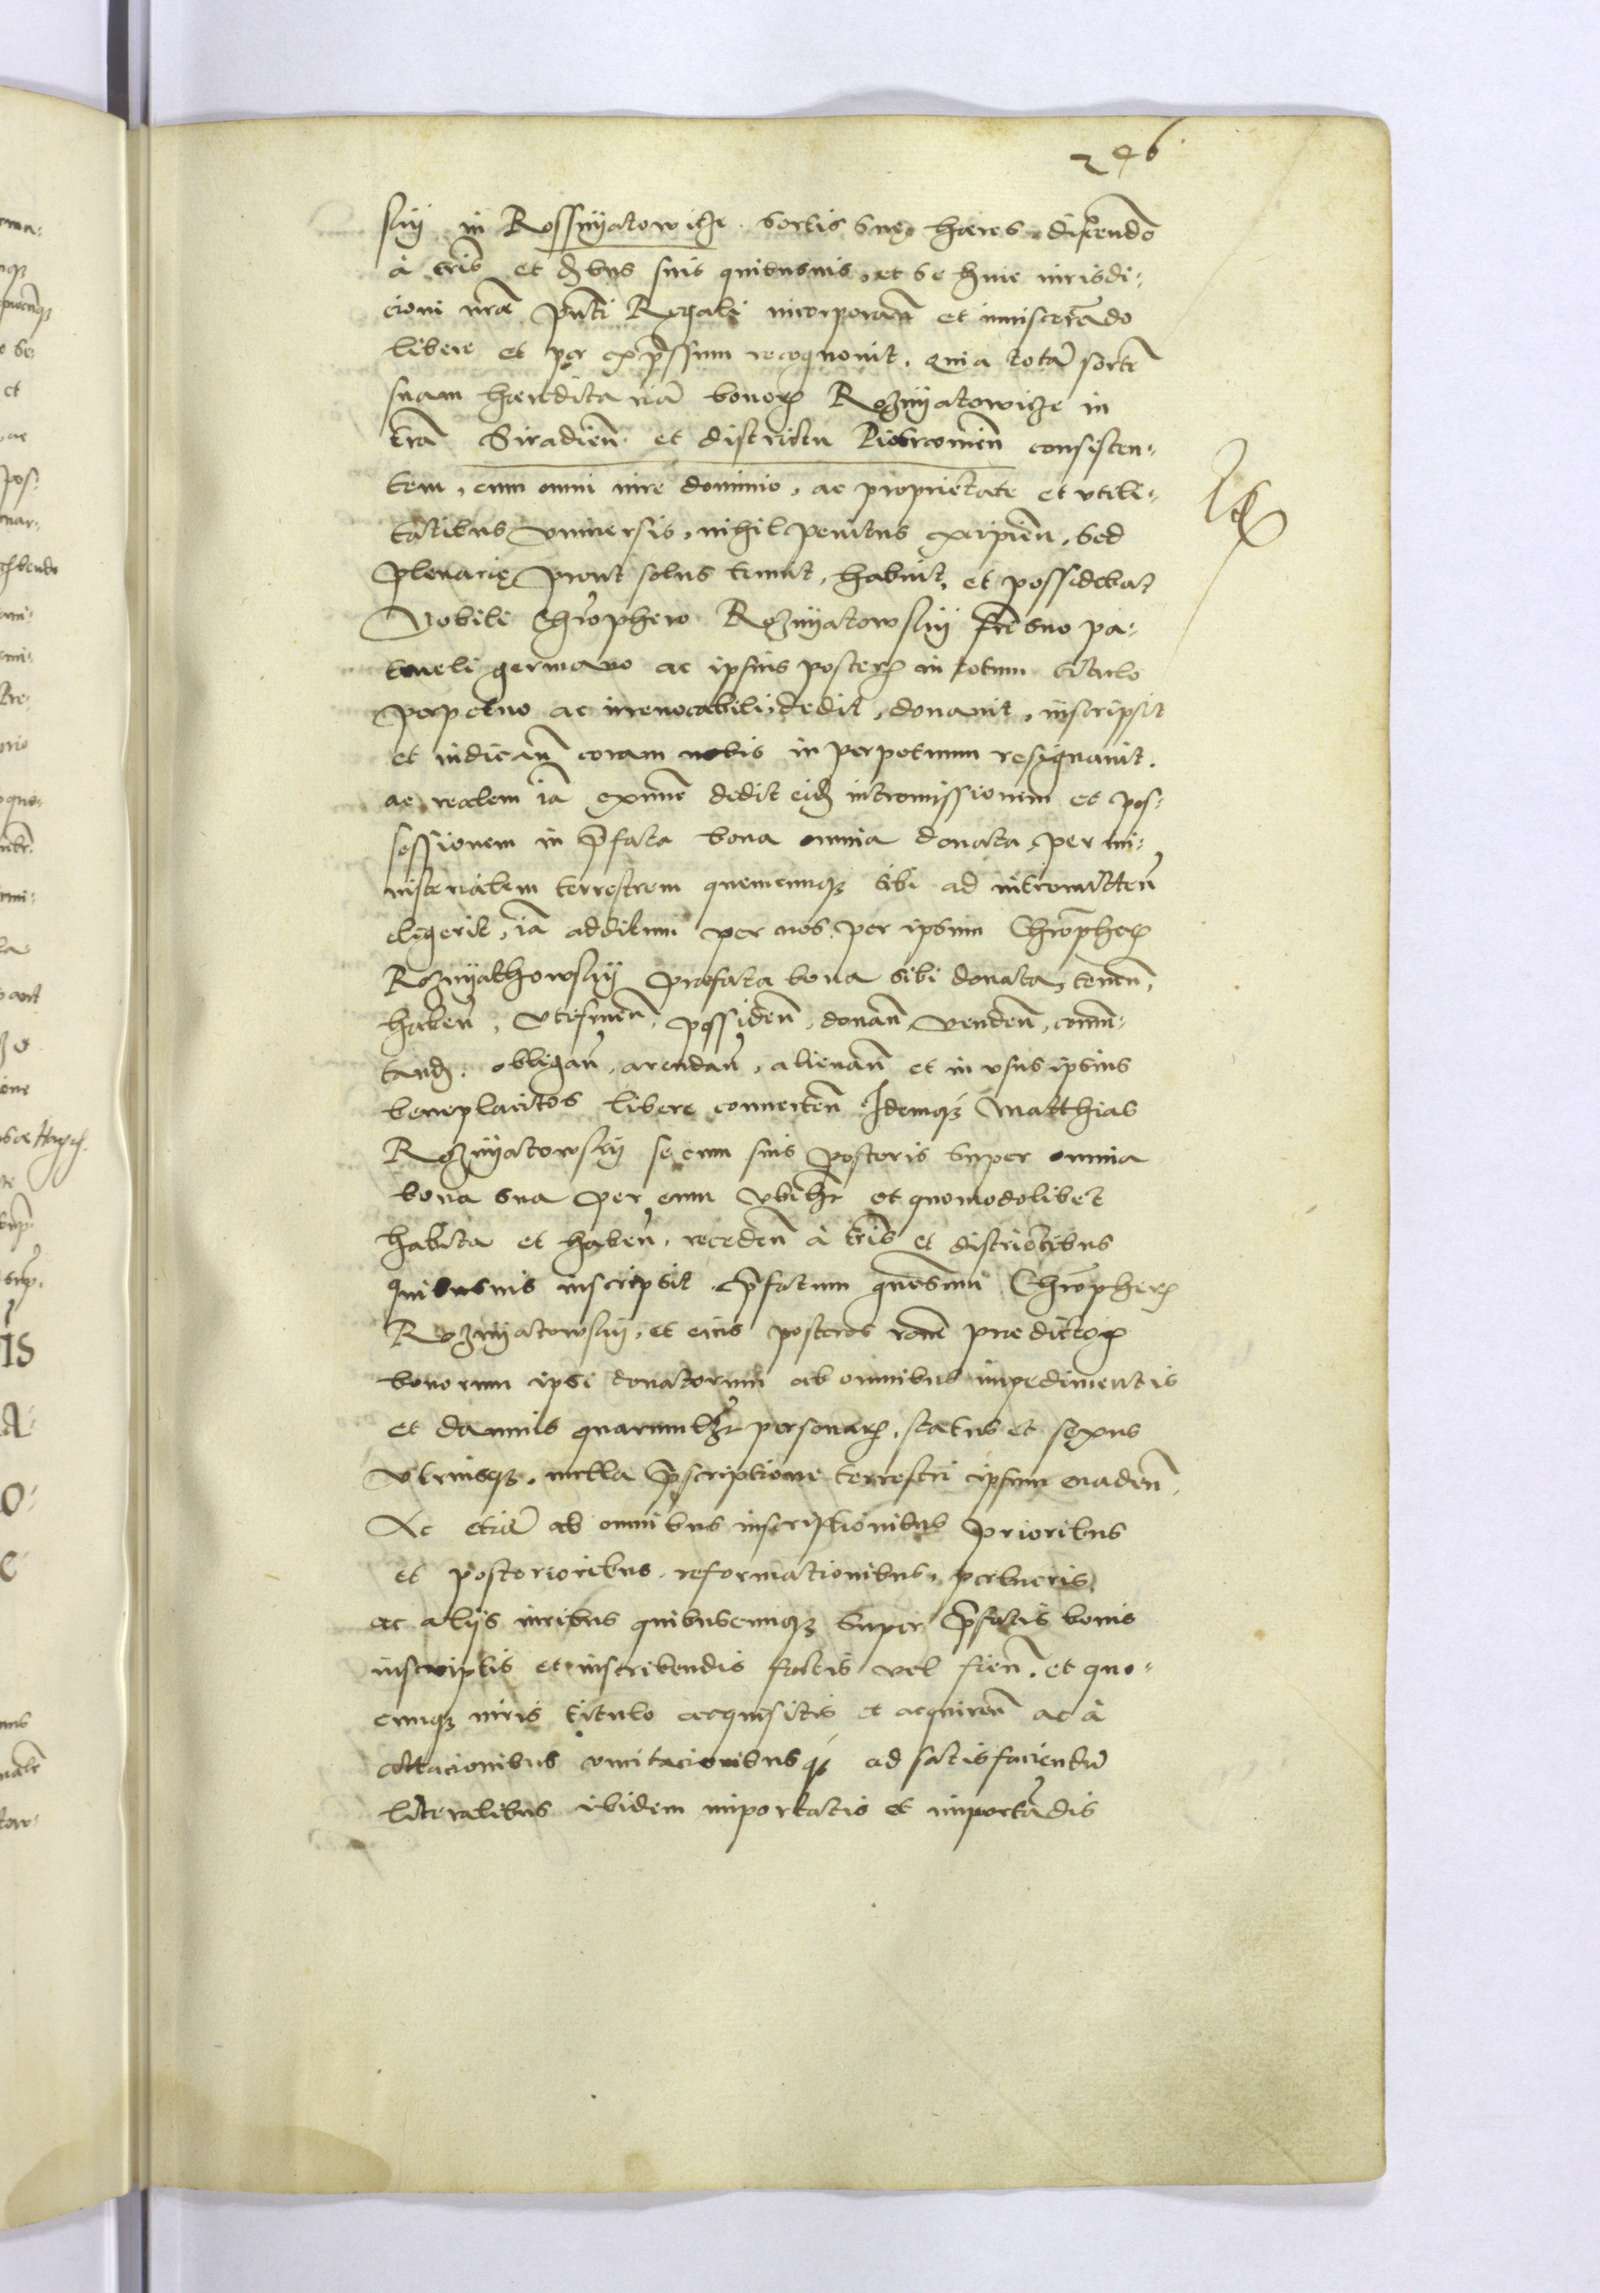 246
skij in Rossnyatowicze sortis suę hæres discendō
à trīs et dībus suis quibusuis, et se huic iurisdi-
cioni nræ pnti Regali incorporan̄ et inuiscerādo
libere et per expssum recognouit, quia totā sortē
suam hæreditariā bonoꝝ Roznyatowicze in
trā Siradien̄ et districtu Piotrcouien̄ consisten-
tem, cum omni iure dominio, ac proprietate et vtili-
tatibus vniuersis, nihil penitus excipien̄, sed
plenarię prout solus tenuit, habuit, et possidebat
Nobili Chrophero Roznyatowskij frī suo pa-
trueli germano ac ipsius posteꝝ in totum titulo
perpetuo ac irreuocabili, dedit, donauit, inscripsit
et iudican̄ coram nobis in perpetuum resignauit.
ac realem iā exnūc dedit eid intromissionem et pos-
sessionem in p̄fata bona omnia donata, per mi-
nisterialem terrestrem quemcunqꝫ sibi ad intromitten̄
elegerit, iā additum per nos, per ipsum Chrōpheꝝ
Roznyathowskij præfata bona sibi donata, tenen̄,
haben̄, vtifruen̄, possiden̄, donan̄ venden̄, comu-
tand. obligan̄, arendan̄, alienan̄ et in vsus ipsius
beneplacitos libere conuerten̄ Idemqꝫ Matthias
Roznyatowskij se cum suis posteris super omnia
bona sua per eum vbilꝫ et quomodolibet
habita et haben̄, receden̄ à trīs et districtibus
quibusuis inscripsit p̄fatum gnosum Chrōpheꝝ
Roznyatowskij, et eius posteros rōne predictoꝝ
bonorum ipsi donatorum ab omnibus impedimentis
et damnis quarumlꝫ personaꝝ, status et sexus
vtriusqꝫ, nulla p̄scriptione terrestri ipsum euaden̄,
Ac etiā ab omnibus inscriptionibus prioribus
et posterioribus, reformationibus,
ac alijs iuribus quibuscunqꝫ super p̄fatis bonis
inscriptis et inscribendis factis vel fien̄, et quo-
cunqꝫ iuris titulo acquisitis et acquiren̄ ac à
citacionibus ad satisfaciendū
literalibus ibidem importatis et importādis